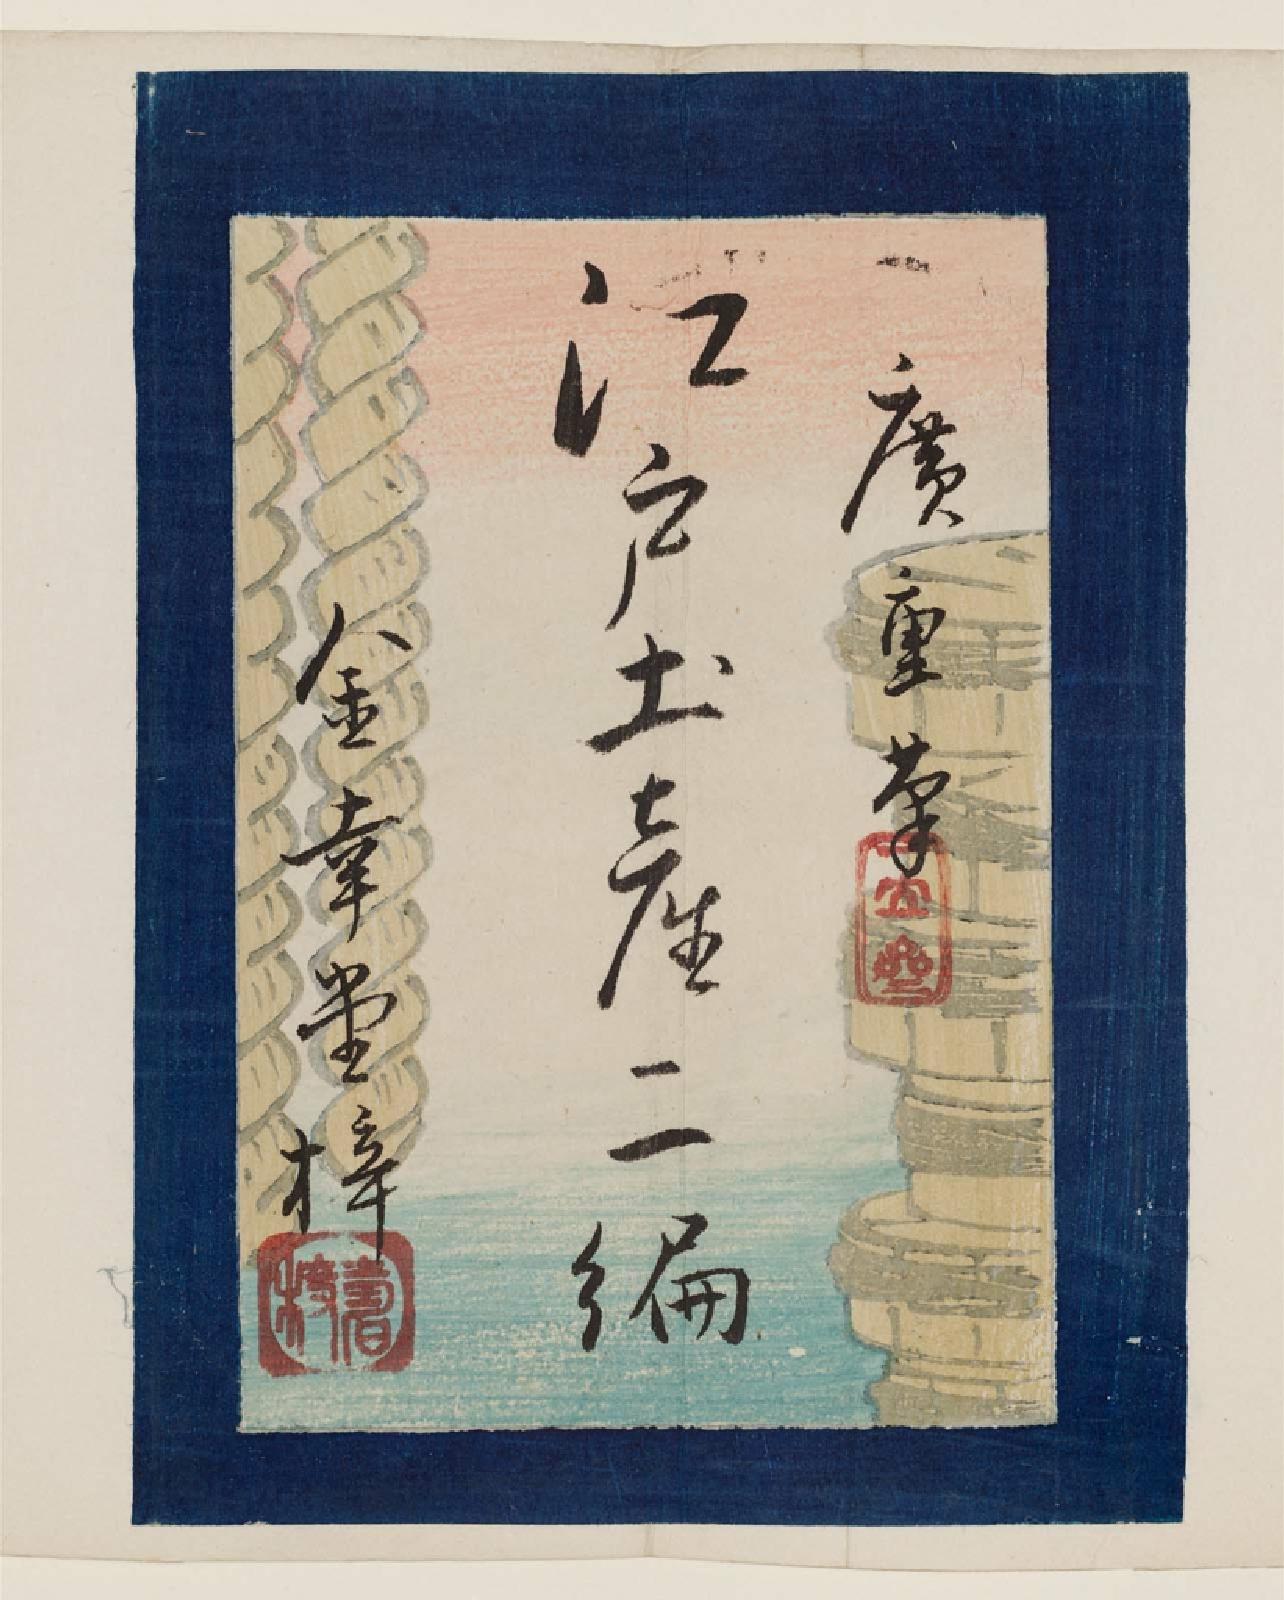 廣重筆
江戸土産二編
金幸堂梓